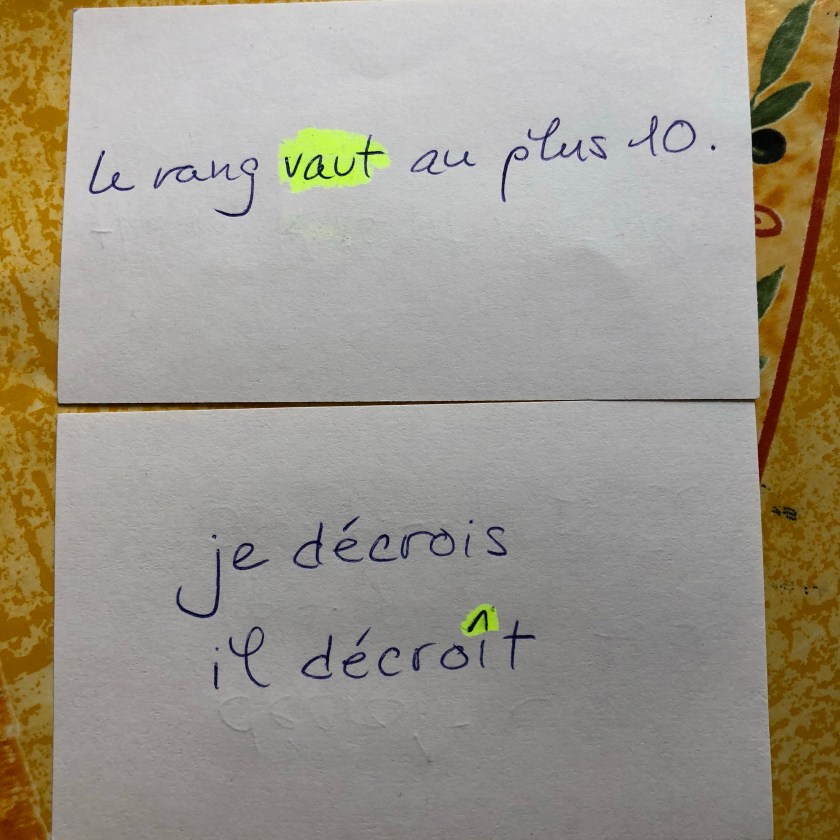 le rang vaut au plus 10.
je décrois
il décroît